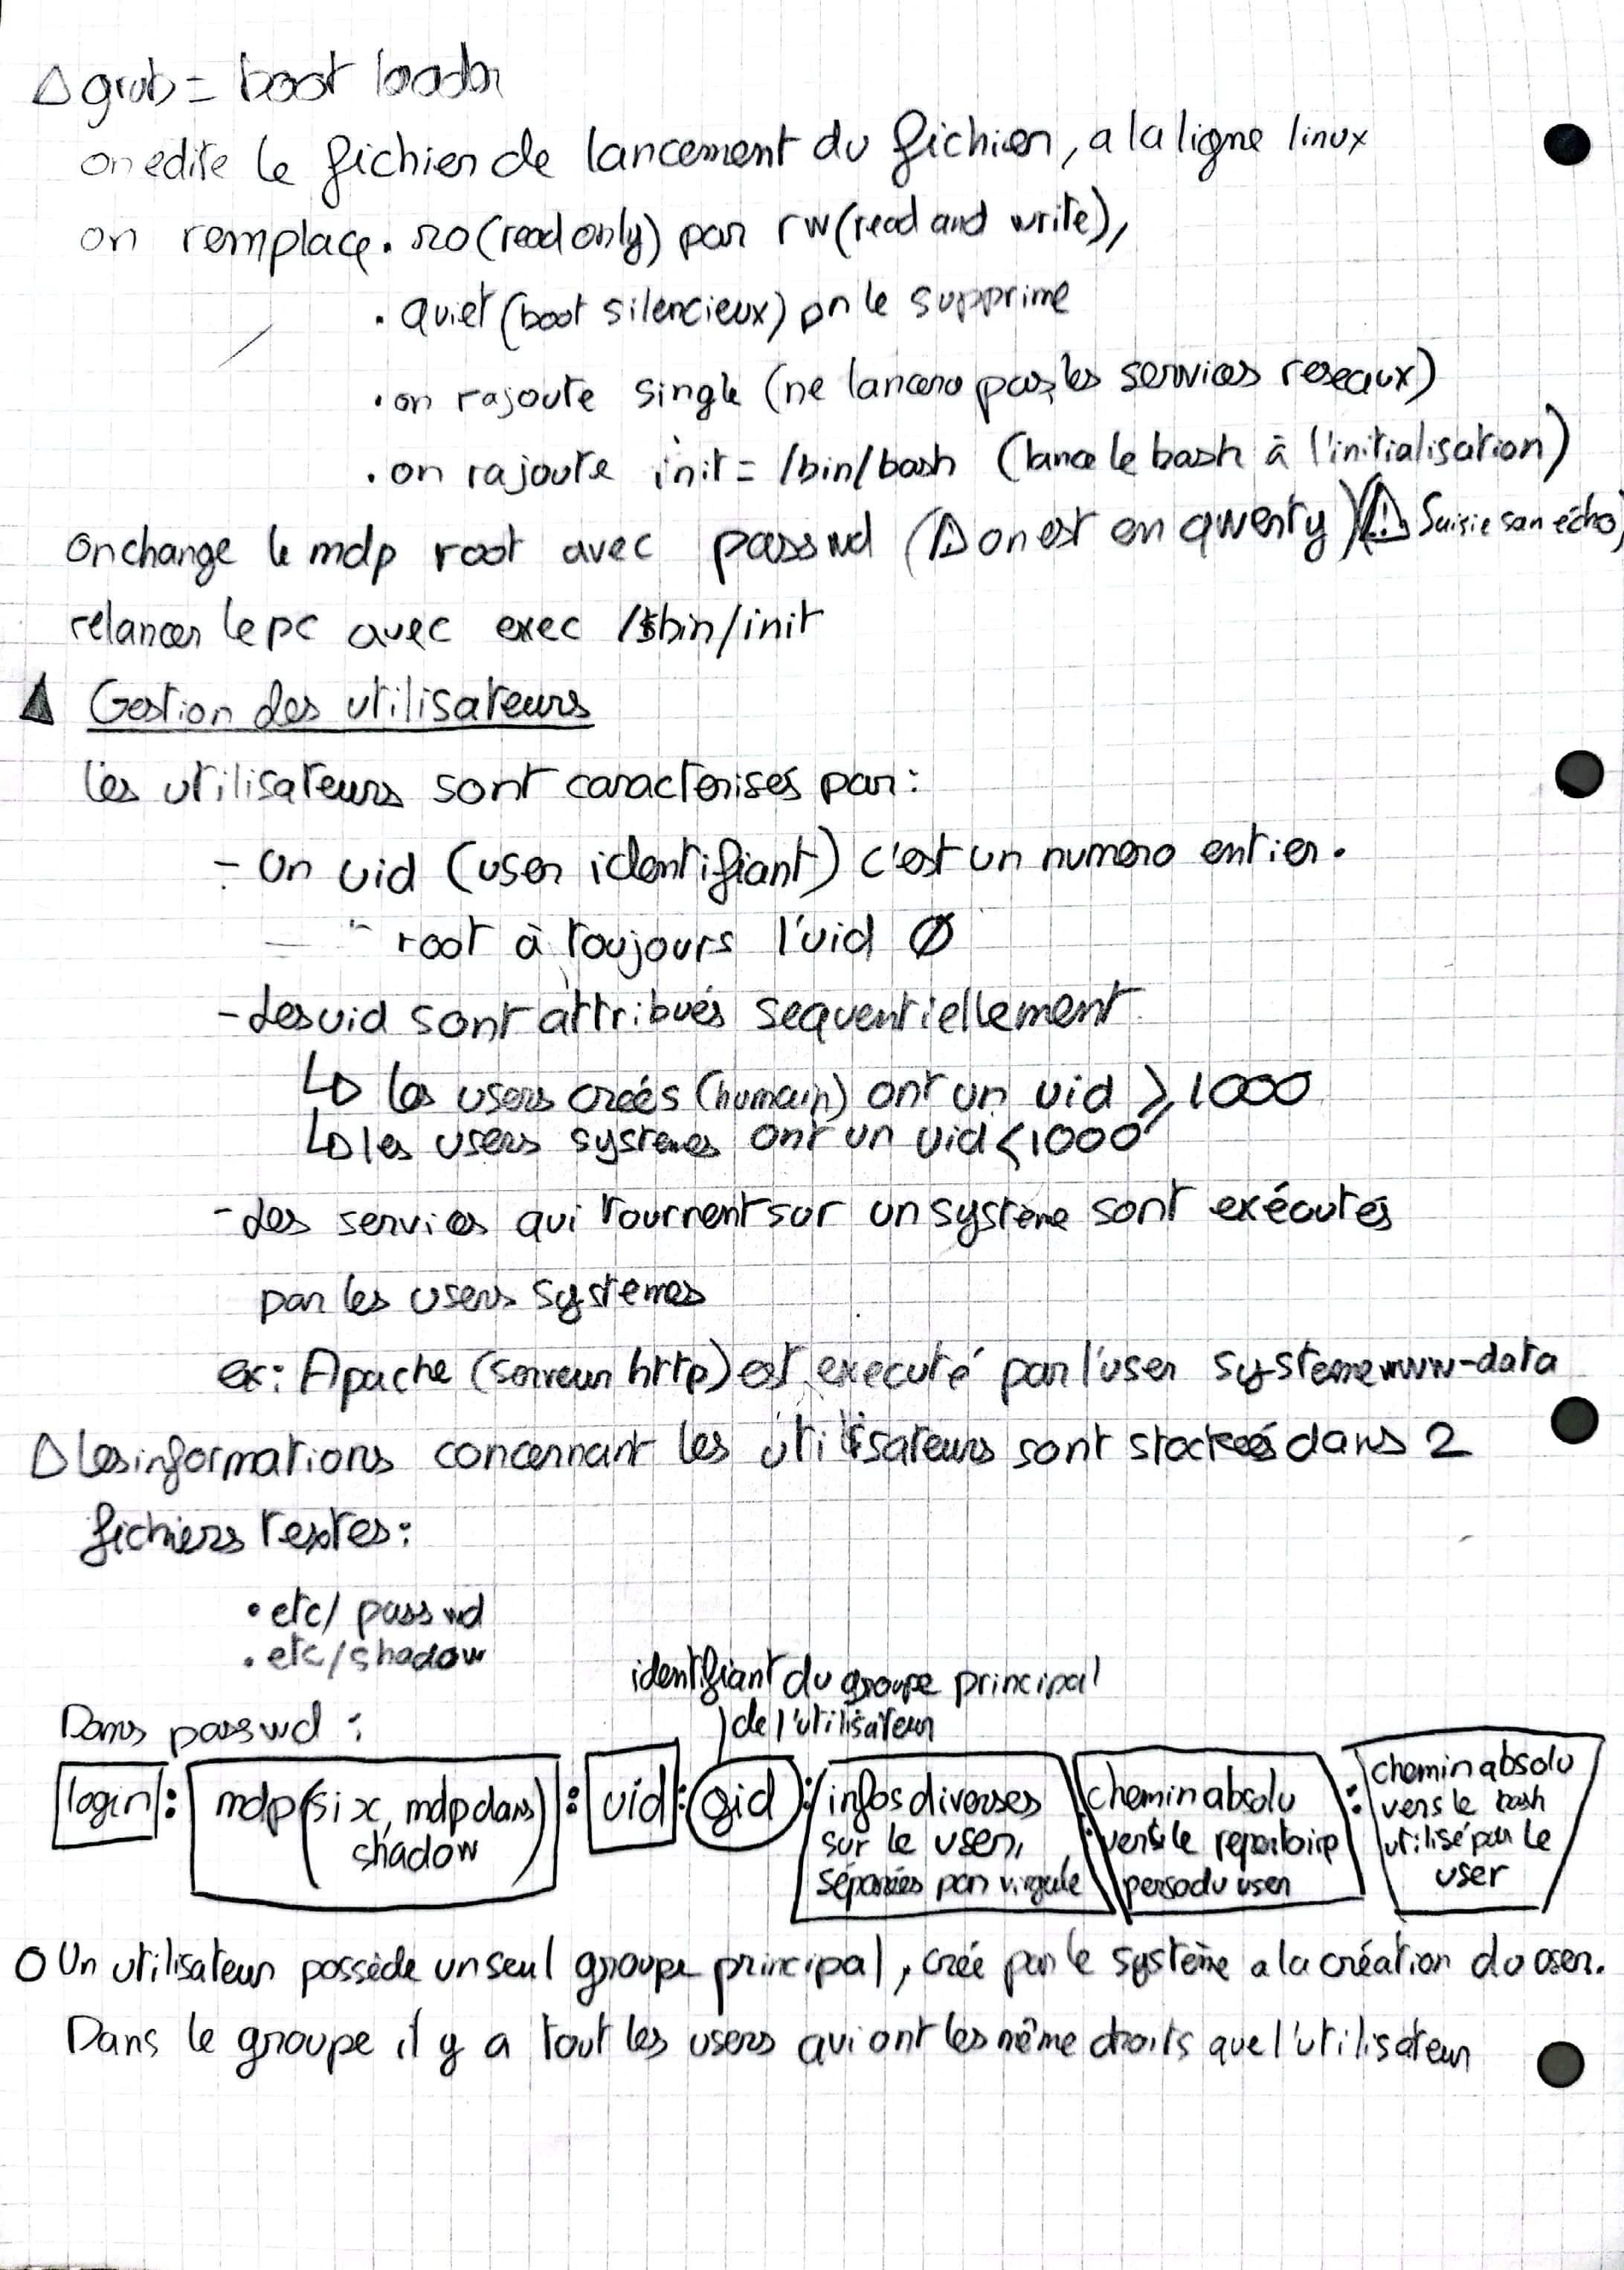 △ grub = boot loader
on edite le fichier de lancement du fichier, a la ligne linux
on remplace . ro (read only) par rw (read and write),
. quiet (boot silencieux) on le supprime
. on rajoute single (ne lancera pas les services reseaux)
. on rajoute init = /bin/bash (lance le bash à l'initialisation)
on change le mdp root avec passwd (△ on est en qwerty) (⚠ Saisie san écho)
relancer le pc avec exec /sbin/init
▲ Gestion des utilisateurs
les utilisateurs sont caracterisés par :
- Un uid (user identifiant) c'est un numero entier.
root à toujours l'uid Ø
- Les uid sont attribués sequentiellement
↳ les users créés (humain) ont un uid ⩾ 1000
↳ les users systemes ont un uid < 1000
- Les services qui tournent sur un système sont exécutés
par les users systemes
ex: Apache (serveur http) est executé par l'user systeme www-data
△ Les informations concernant les utilisateurs sont stockées dans 2
fichiers textes :
• etc/ passwd
. etc/shadow
identifiant du groupe principal
de l'utilisateur
Dans passwd :
login : mdp (si x, mdp dans shadow) : uid : gid : infos diverses sur le user, séparées par virgule : chemin absolu vers le repertoire perso du user : chemin absolu vers le bash utilisé par le user
O Un utilisateur possède un seul groupe principal, crée par le système a la création du user.
Dans le groupe il y a tout les users qui ont les même droits que l'utilisateur